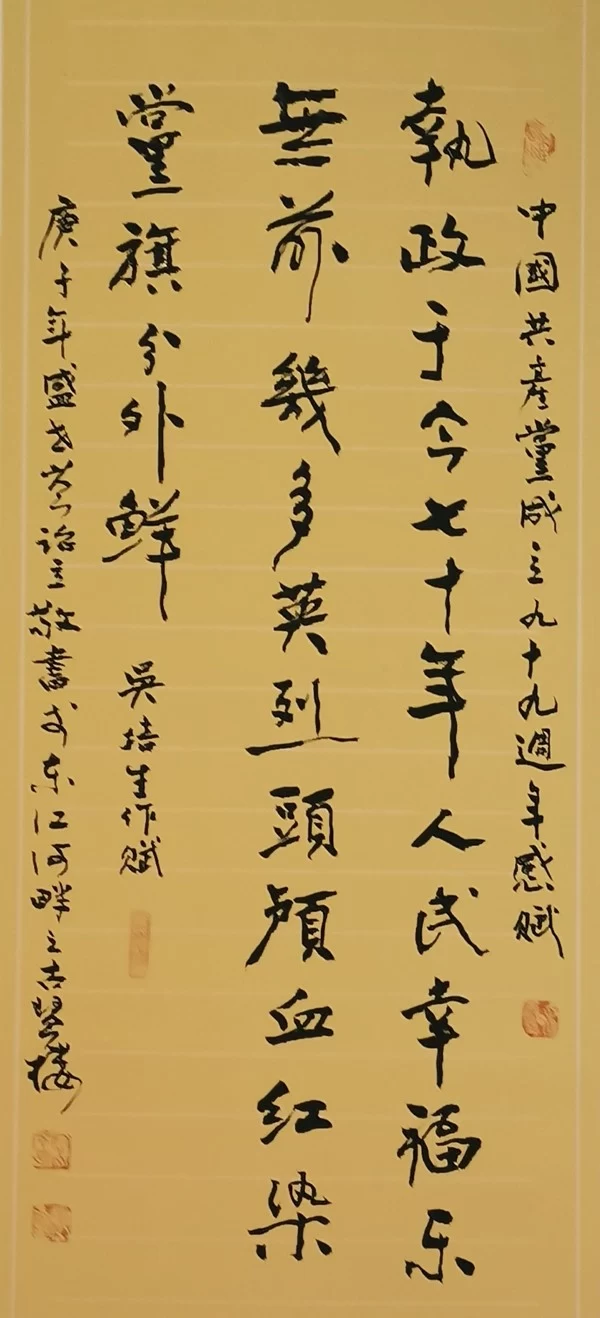 中國共產黨成立九十九週年感賦
執政于今七十年人民幸福乐
無前幾多英烈頭顱血红染
黨旗分外鮮
吳培生作賦
庚子年盛世敬書于东江河畔之古楼